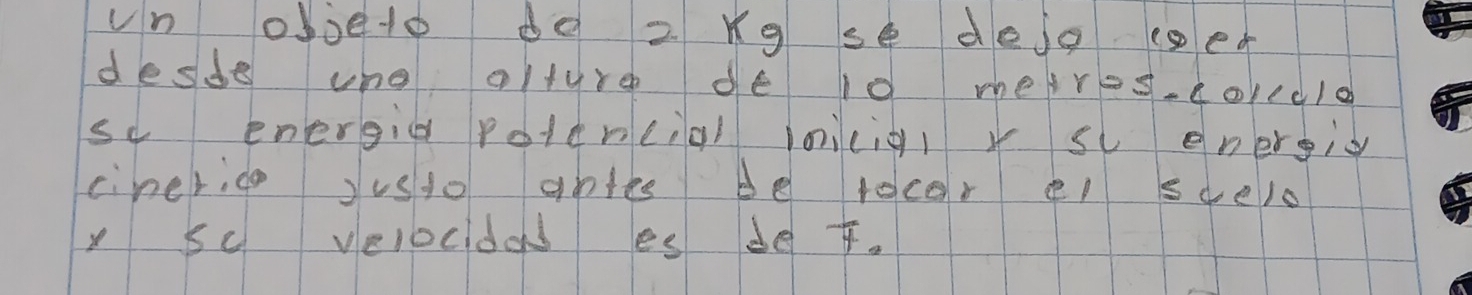 un objeto de 2 Kg se deja caer
desde una altura de 10 metros-calcula
su energia potencial inicial y su energia
cinetica justo antes de tocar el suelo
y su velocidad es de 7.